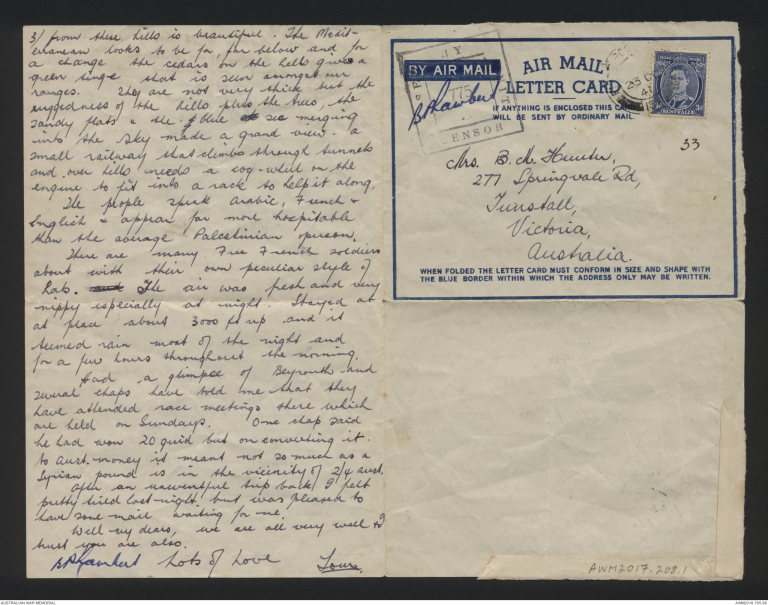 3/ from these hills is beautiful. The Medit-
erranean looks to be far, far below and for
a change the cedars on the hills give a
green tinge that is seen amongst our
ranges. They are not very thick but the
ruggedness of the hills plus the trees, the
sandy flats & the blue sea merging
into the sky made a grand view. A
small railway that climbs through tunnels
and over hills needs a cog-wheel on the
engine to fit into a rack to help it along.
The people speak Arabic, French &
English & appear far more hospitable
than the average Palestinian person.
There are many Free French soldiers
about with their own peculiar style of
hats. The air was fresh and very
nippy especially at night. Stayed at
at place about 3000 ft up and it
seemed rain most of the night and
for a few hours throughout the morning.
Had a glimpse of Beyrouth and
several chaps have told me that they
have attended race meetings there which
are held on Sundays. One chap said
he had won 20 quid but on converting it
to Aust. money it meant not so much as a
Syrian pound is in the vicinity of 2/4 Aust.
After an uneventful trip back I felt
pretty tired last night but was pleased to
have some mail waiting for me.
Well my dears, we are all very well &
trust you are also.
Lots of love
BALambert
AIR MAIL
LETTER CARD
BY AIR MAIL
BALambert
775
CENSOR
IF ANYTHING IS ENCLOSED THIS CARD
WILL BE SENT BY ORDINARY MAIL
AUSTRALIA
33
Mrs. B. M. Hunter,
277 Springvale Rd,
Tunstall,
Victoria,
Australia.
WHEN FOLDED THE LETTER CARD MUST CONFORM IN SIZE AND SHAPE WITH
THE BLUE BORDER WITHIN WHICH THE ADDRESS ONLY MAY BE WRITTEN.
AWM2017.208.1
AUSTRALIAN WAR MEMORIAL